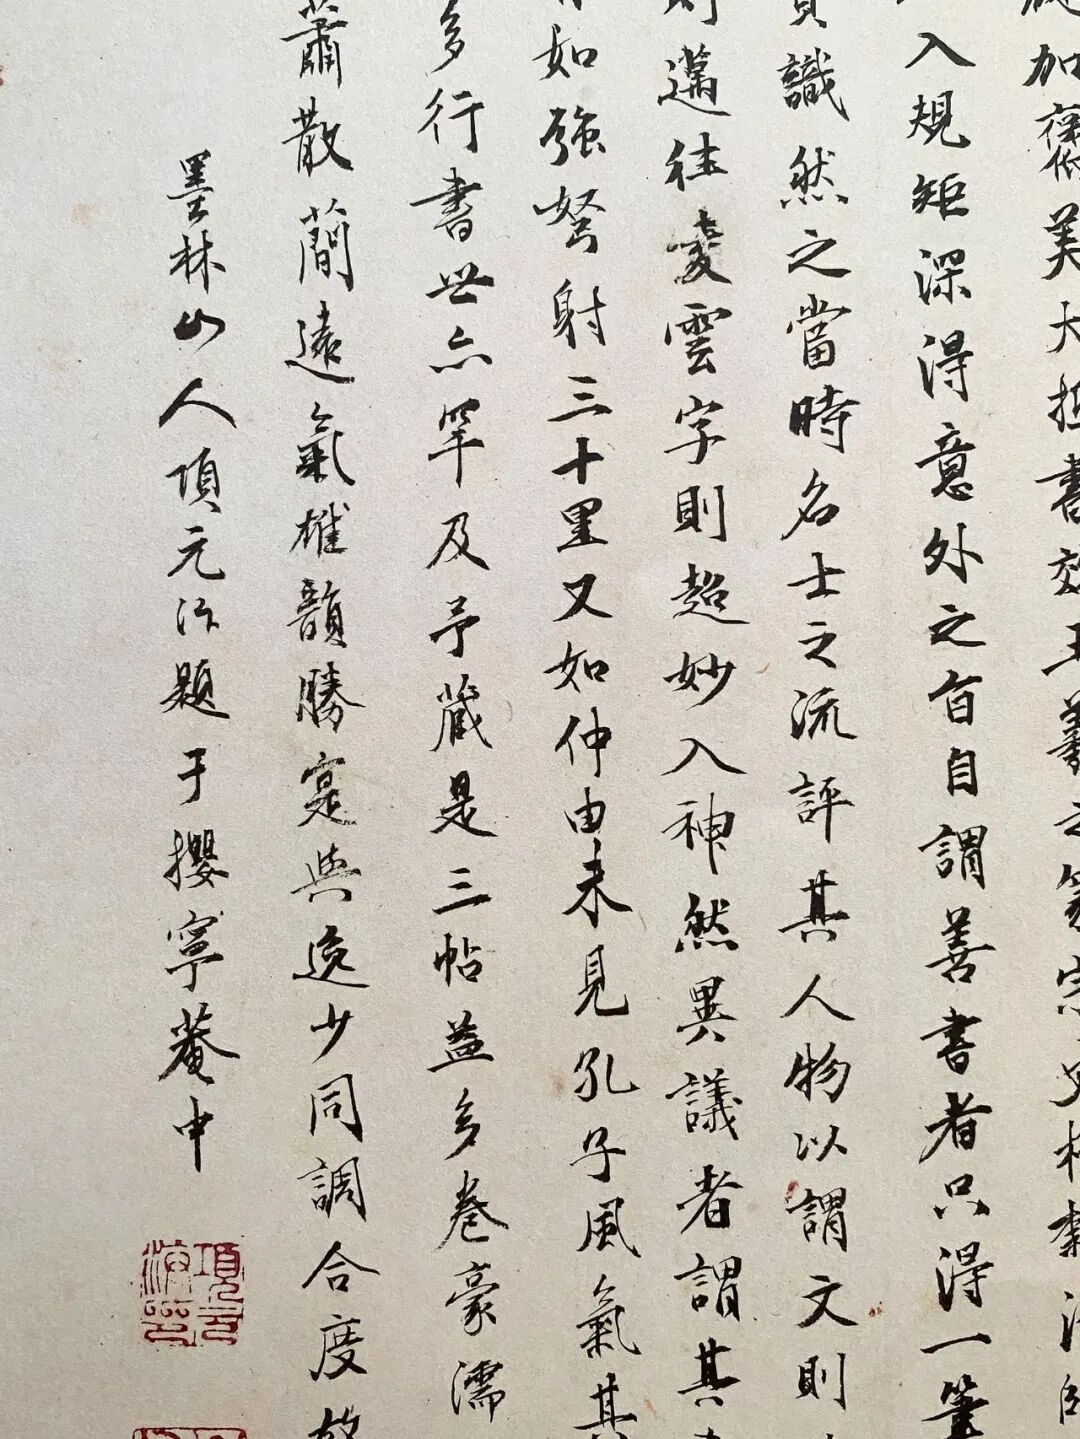 加 美大抵書效王羲之
入規矩深得意外之旨自謂善書者只得一筆
識然之當時名士之流評其人物以謂文則
則邁往凌雲字則超妙入神然異議者謂其
如強弩射三十里又如仲由未見孔子風氣其
多行書世亦罕及予藏是三帖益多卷豪濡
蕭散簡遠氣雄韻勝寔與逸少同調合度故
墨林山人項元汴題于攖寧菴中
項元汴印